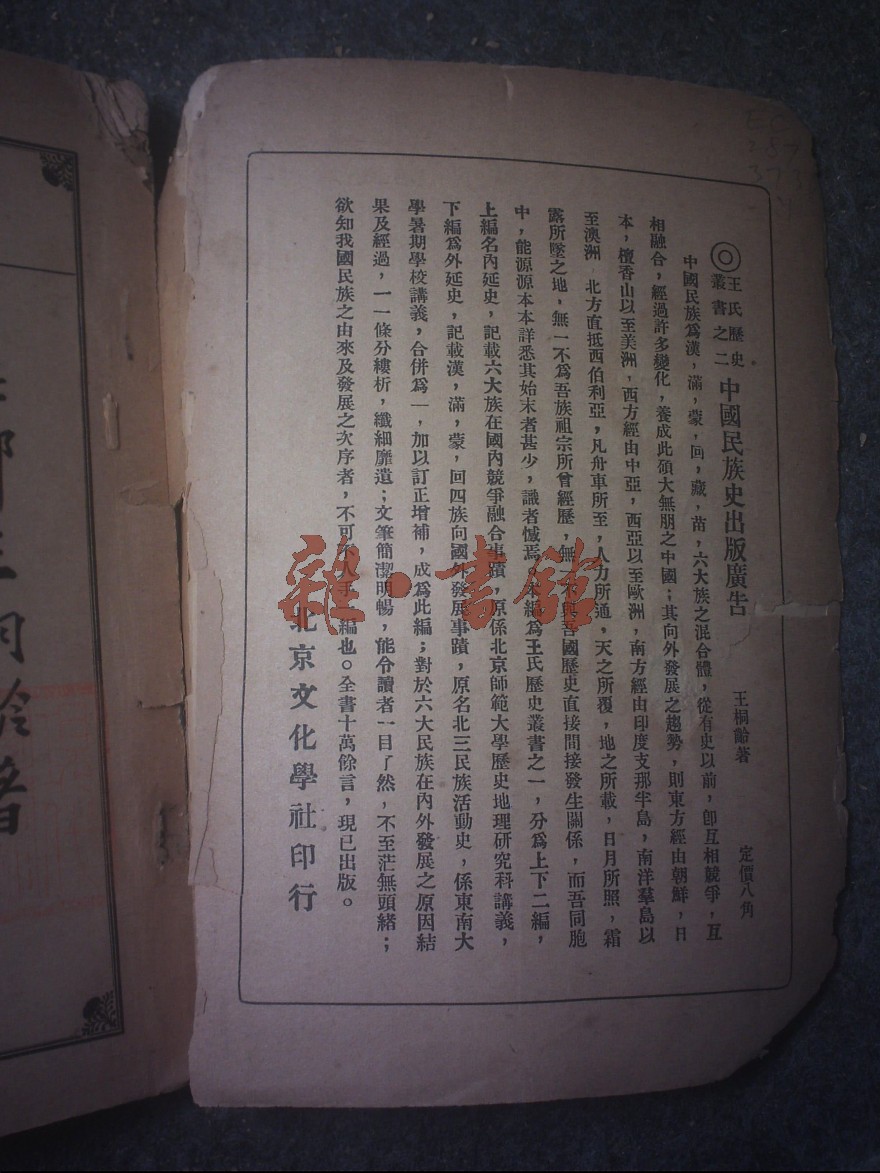 ◎王氏歷史叢書之二 中國民族史出版廣告 王桐齡著 定價八角
中國民族爲漢，滿，蒙，回，藏，苗，六大族之混合體，從有史以前，卽互相競爭，互
相融合，經過許多變化，養成此碩大無朋之中國；其向外發展之趨勢，則東方經由朝鮮，日
本，檀香山以至美洲，西方經由中亞，西亞以至歐洲，南方經由印度支那半島，南洋羣島以
至澳洲 北方直抵西伯利亞，凡舟車所至，人力所通，天之所覆，地之所載，日月所照，霜
露所墜之地，無一不爲吾族祖宗所曾經歷，無一不與吾國歷史直接間接發生關係，而吾同胞
中，能源源本本詳悉其始末者甚少，識者憾焉。本編爲王氏歷史叢書之一，分爲上下二編，
上編名內延史，記載六大族在國內競爭融合事蹟，原係北京師範大學歷史地理研究科講義，
下編爲外延史，記載漢，滿，蒙，回四族向國外發展事蹟，原名北三民族活動史，係東南大
學暑期學校講義，合併爲一，加以訂正增補，成爲此編；對於六大民族在內外發展之原因結
果及經過，一一條分縷析，纖細靡遺；文筆簡潔明暢，能令讀者一目了然，不至茫無頭緒；
欲知我國民族之由來及發展之次序者，不可不人手一編也。全書十萬餘言，現已出版。
北京文化學社印行
王桐齡著
雜·書館